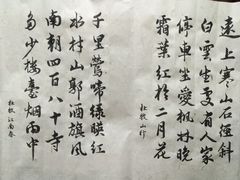 遠上寒山石徑斜
白雲生處有人家
停車坐愛楓林晚
霜葉紅於二月花
杜牧山行
千里鶯啼綠映紅
水村山郭酒旗風
南朝四百八十寺
多少樓臺烟雨中
杜牧江南春